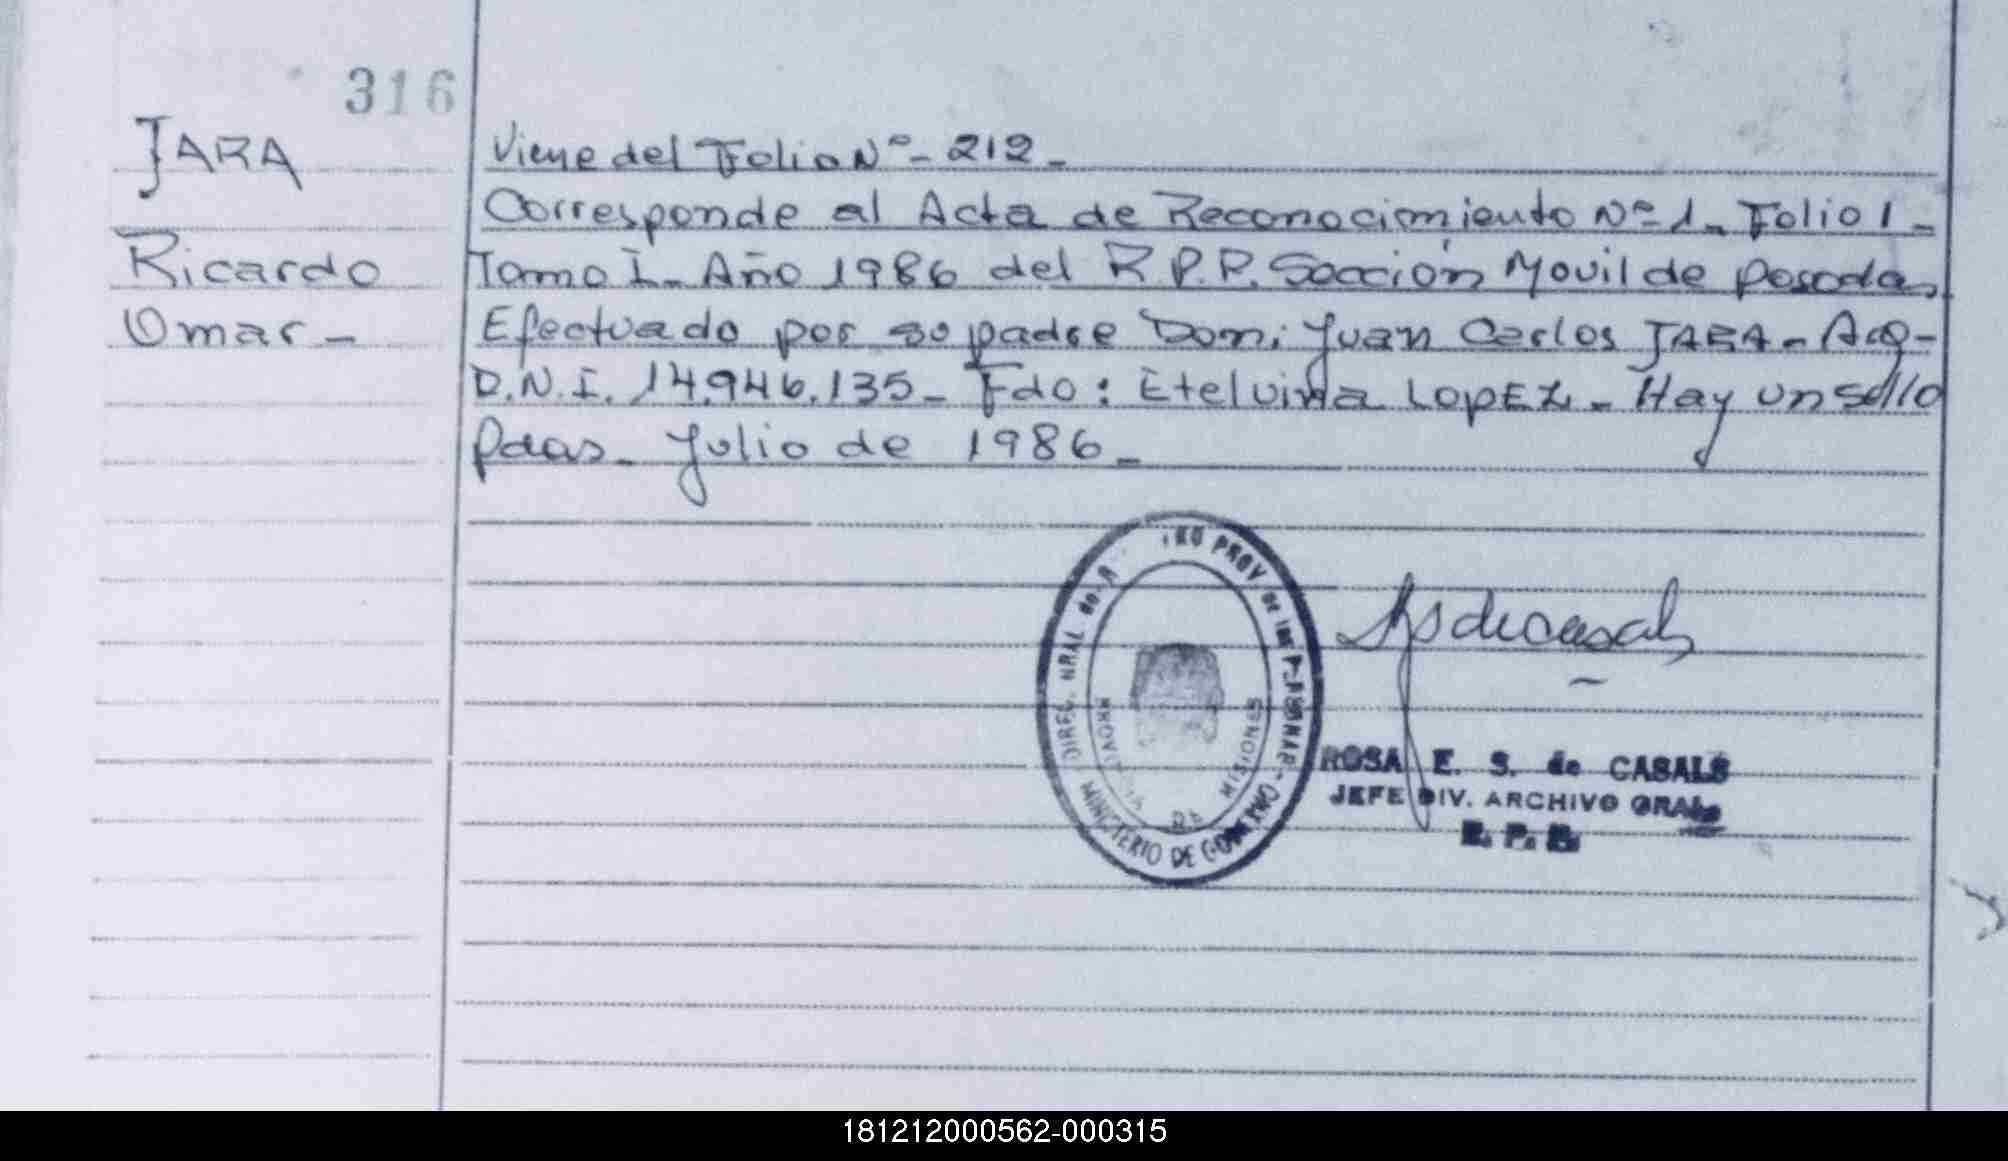 316
JARA
Ricardo
Omar -
Viene del Folio Nº - 212 -
Corresponde al Acta de Reconocimiento Nº 1 - Folio 1 -
Tomo I - Año 1986 del R.P.P. Sección Movil de Posadas
Efectuado por su padre Don: Juan Carlos JARA -
D.N.I. 14.946.135 - Fdo: Etelvina LOPEZ - Hay un sello
Pdas - Julio de 1986 -
PROV de las
MISIONES
MINISTERIO DE GOBIERNO
ROSA E. S. de CASALS
JEFE DIV. ARCHIVO GRAL
181212000562-000315